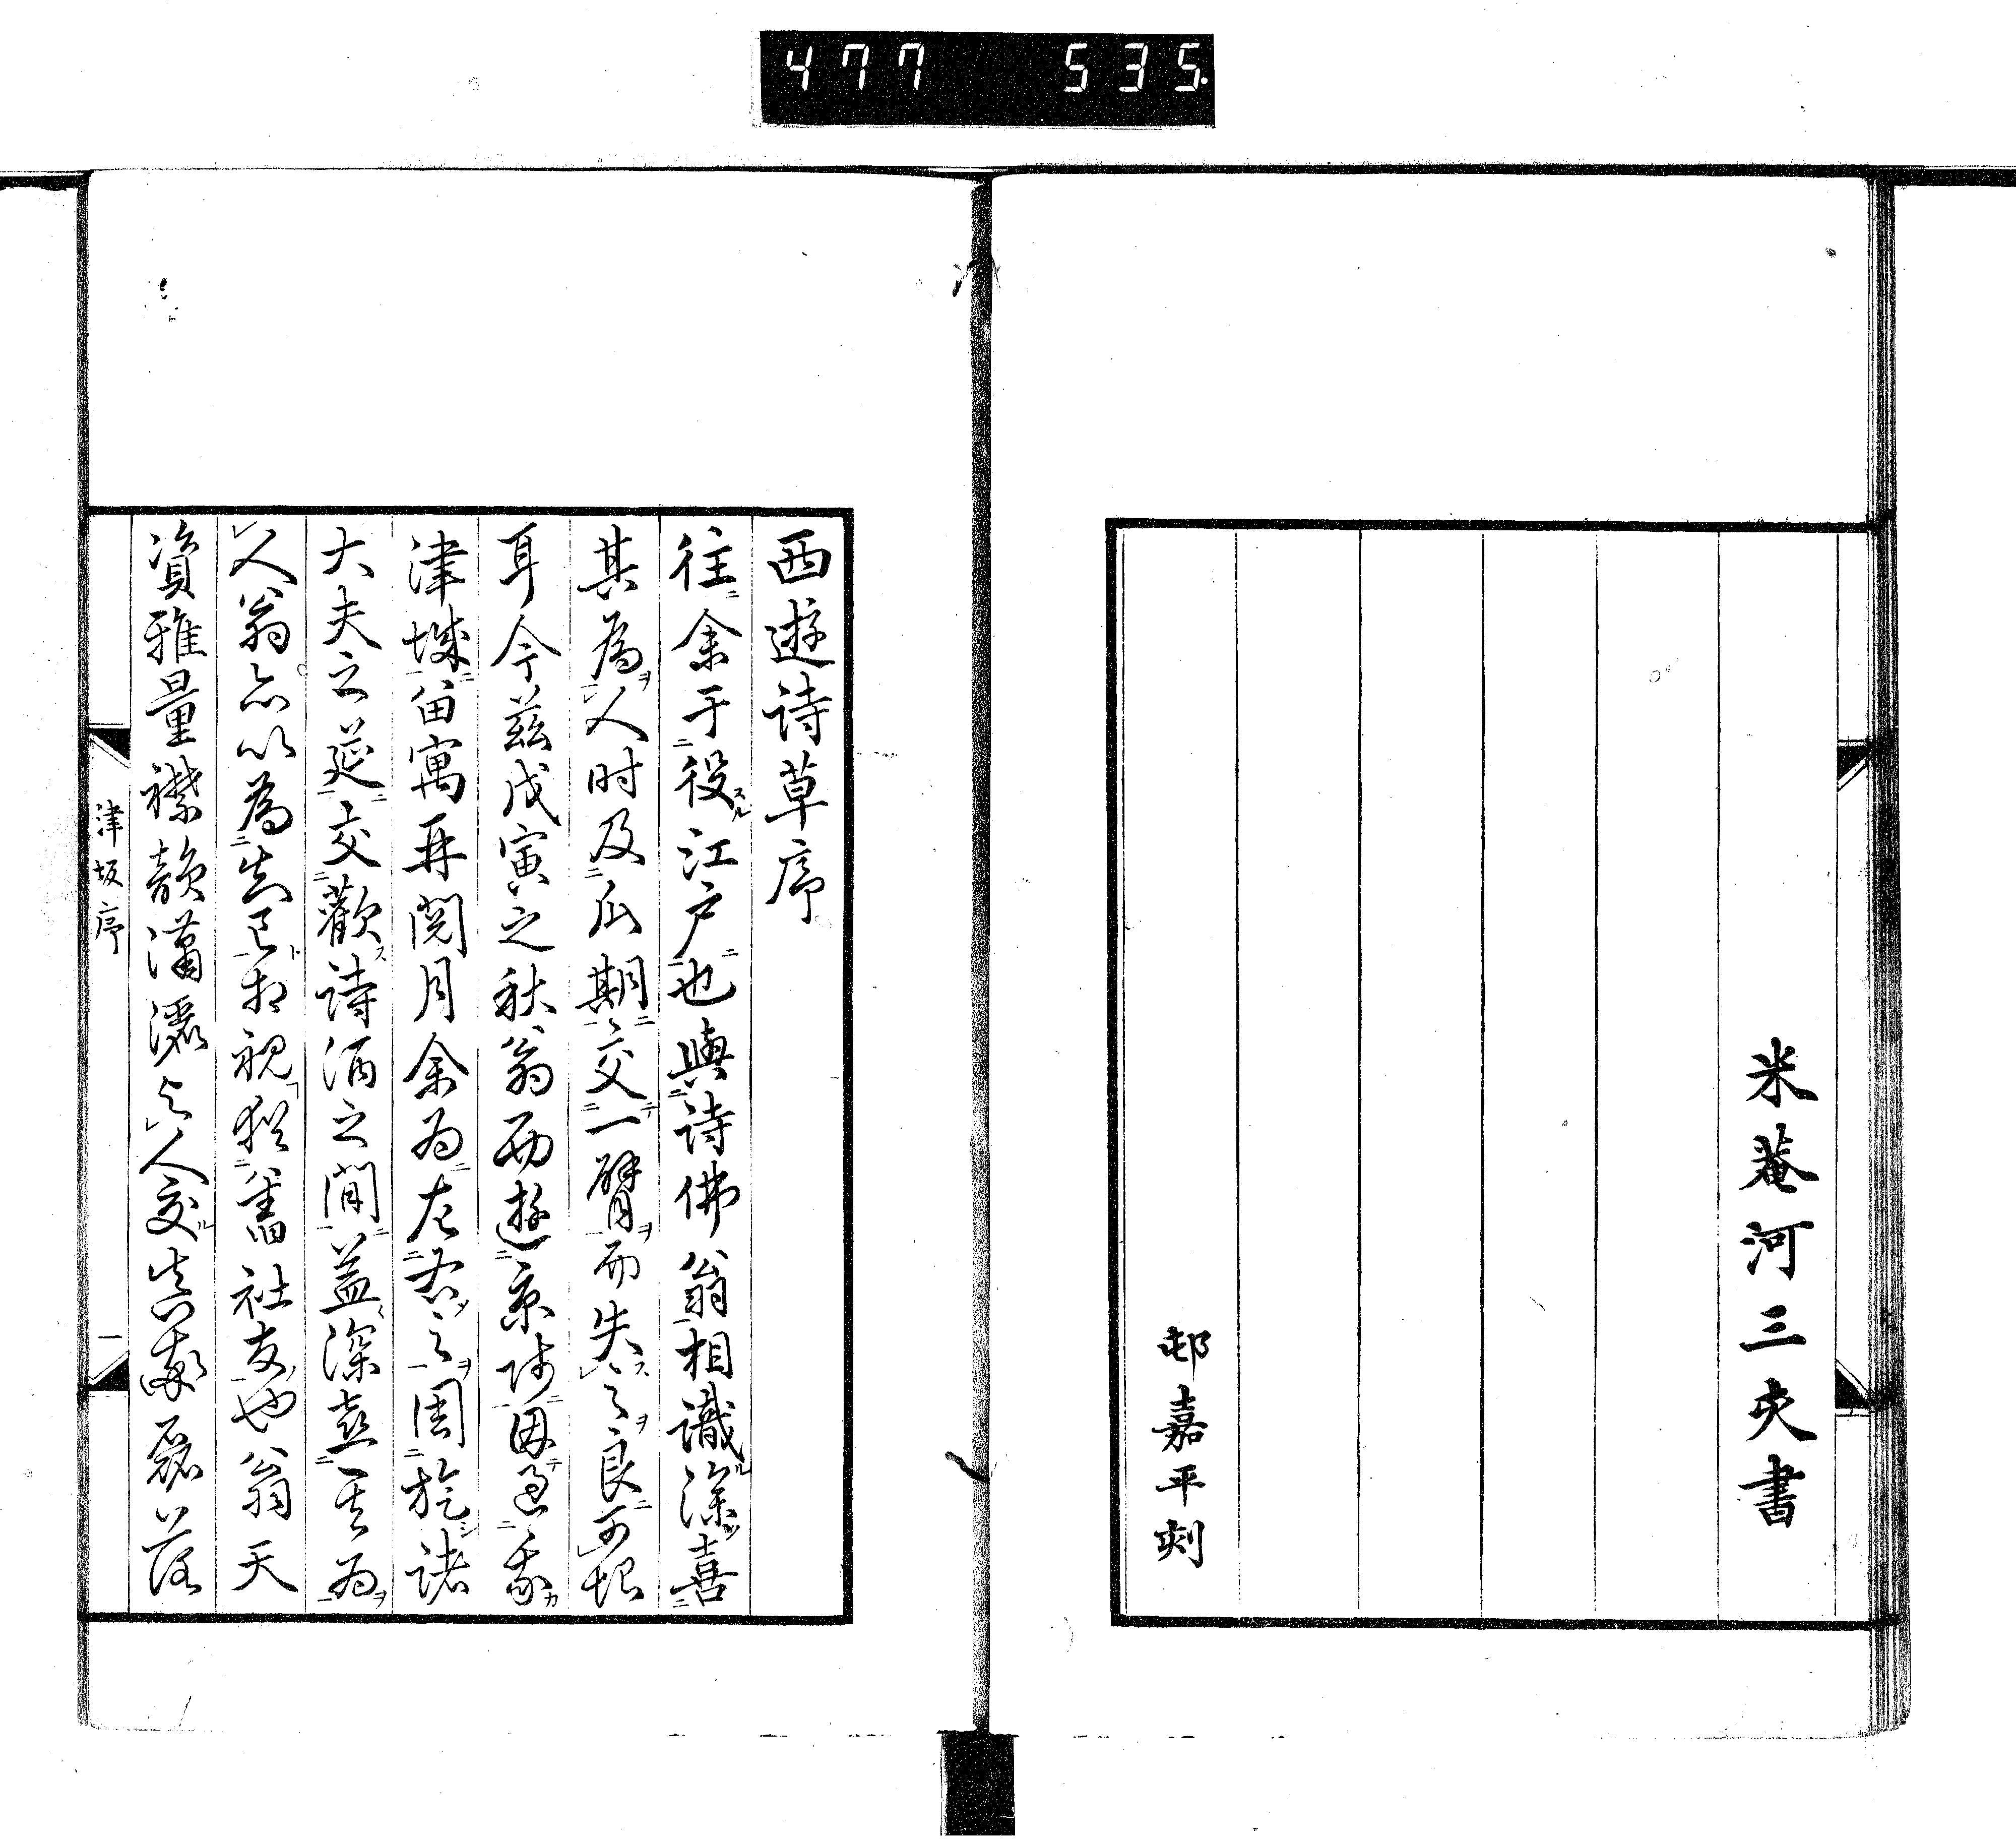 477 535
米菴河三亥書
邨嘉平刻
西遊詩草序
往余于役江戸也與詩佛翁相識深喜
其為人时及瓜期交一臂而失之良可恨
耳今茲戊寅之秋翁西遊京師因過我
津城留寓再閲月余为左右之周旋諸
大夫之延交歡詩酒之間益深喜其为
人翁亦以為知己相視猶舊社友也翁天
資雅量襟韻瀟灑与人交真率磊落
津坂序
一